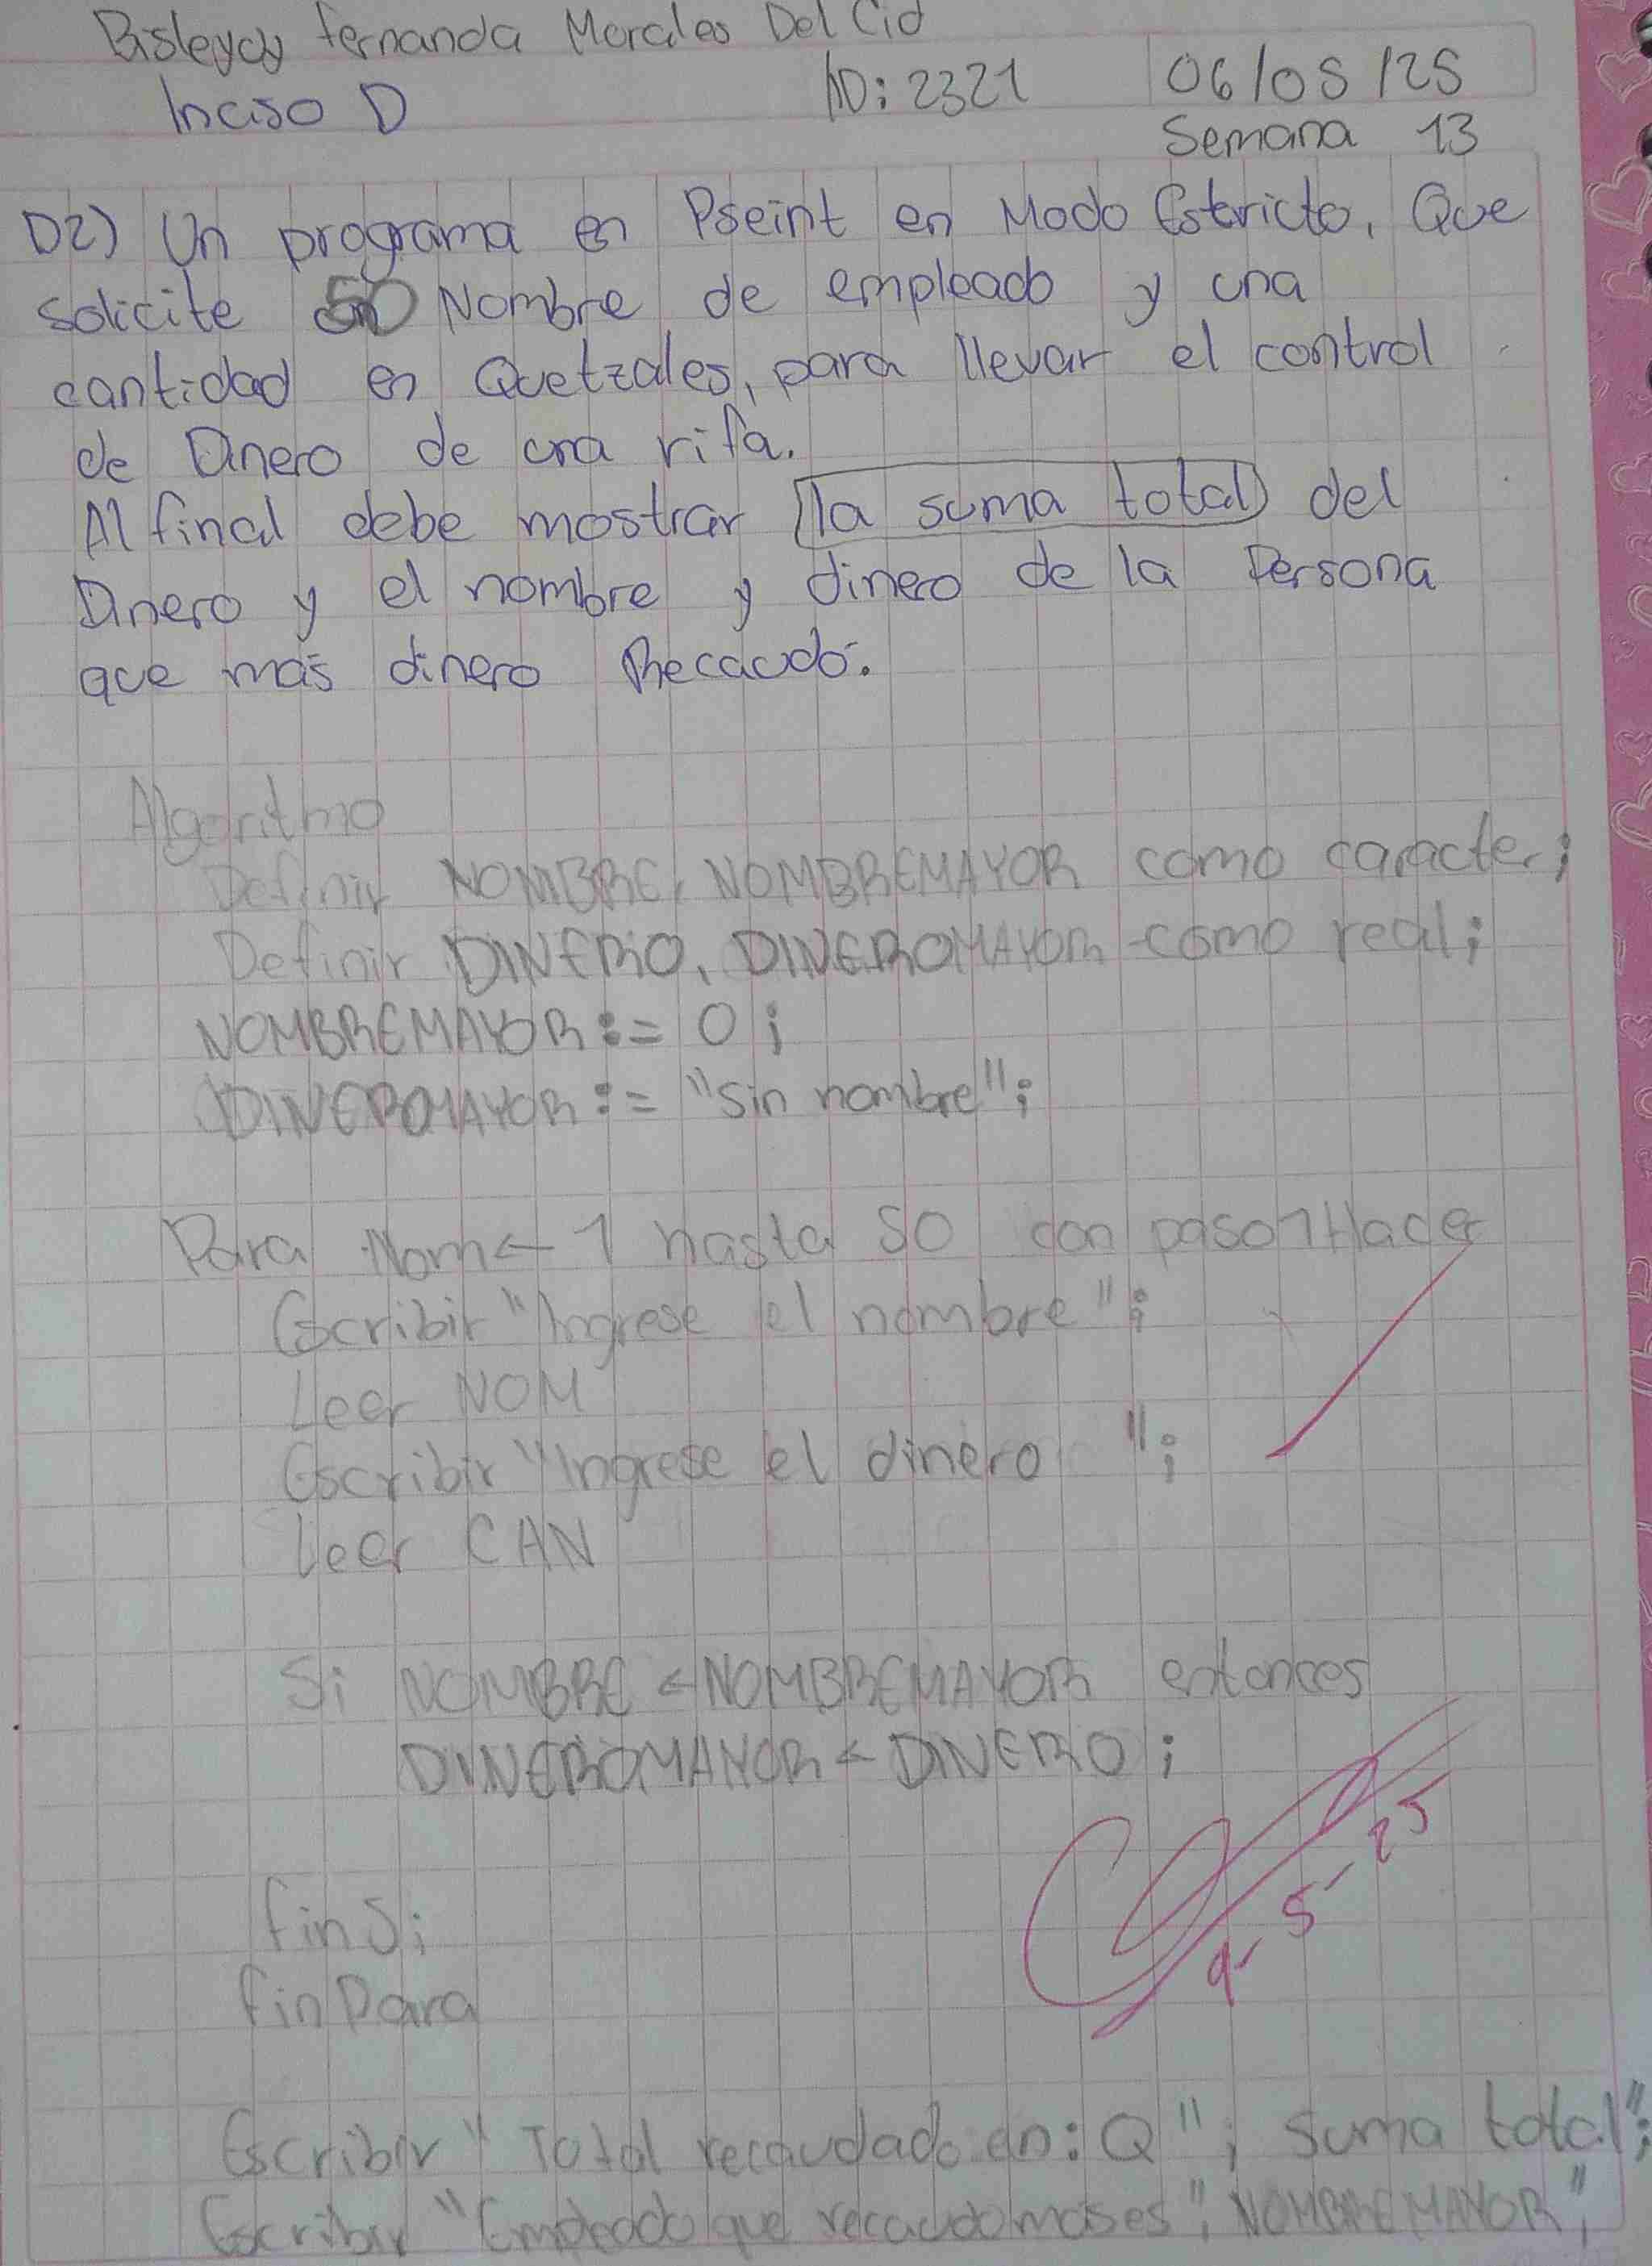 Fernanda Morales Del Cid
Inciso D
ID: 2321
06/05/25
Semana 13
D2) Un programa en Pseint en Modo Estricto, Que
solicite 50 Nombre de empleado y una
cantidad en Quetzales, para llevar el control
de Dinero de una rifa.
Al final debe mostrar la suma total del
Dinero y el nombre y dinero de la Persona
que más dinero Recaudó.
Algoritmo
Definir NOMBRE, NOMBREMAYOR como caracter;
Definir DINERO, DINEROMAYOR como real;
NOMBREMAYOR := 0;
DINEROMAYOR := "Sin nombre";
Para Nom← 1 hasta 50 con paso 1 Hacer
Escribir "Ingrese el nombre";
Leer NOM
Escribir "Ingrese el dinero ";
Leer CAN
Si NOMBRE < NOMBREMAYOR entonces
DINEROMAYOR < DINERO;
9-5-25
fin Si
fin Para
Escribir "Total recaudado en: Q"; Suma total";
Escribir "Empleado que recaudo mas es", NOMBREMAYOR";